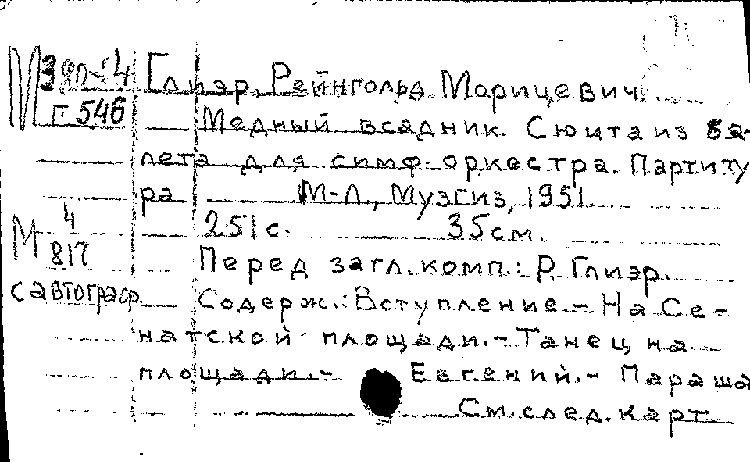 М З 80-4
Г 546
Глиэр, Рейнгольд Морицевич.
Медный всадник. Сюита из ба-
лета для симф. оркестра. Партиту
ра М-Л., Музгиз, 1951.
251 с. 35 см.
М 4
817
с автограф.
Перед загл. комп.: Р. Глиэр.
Содерж.: Вступление. - На Се-
натской площади. - Танец на
площади. - Евгений. - Параша
См. след. карт.